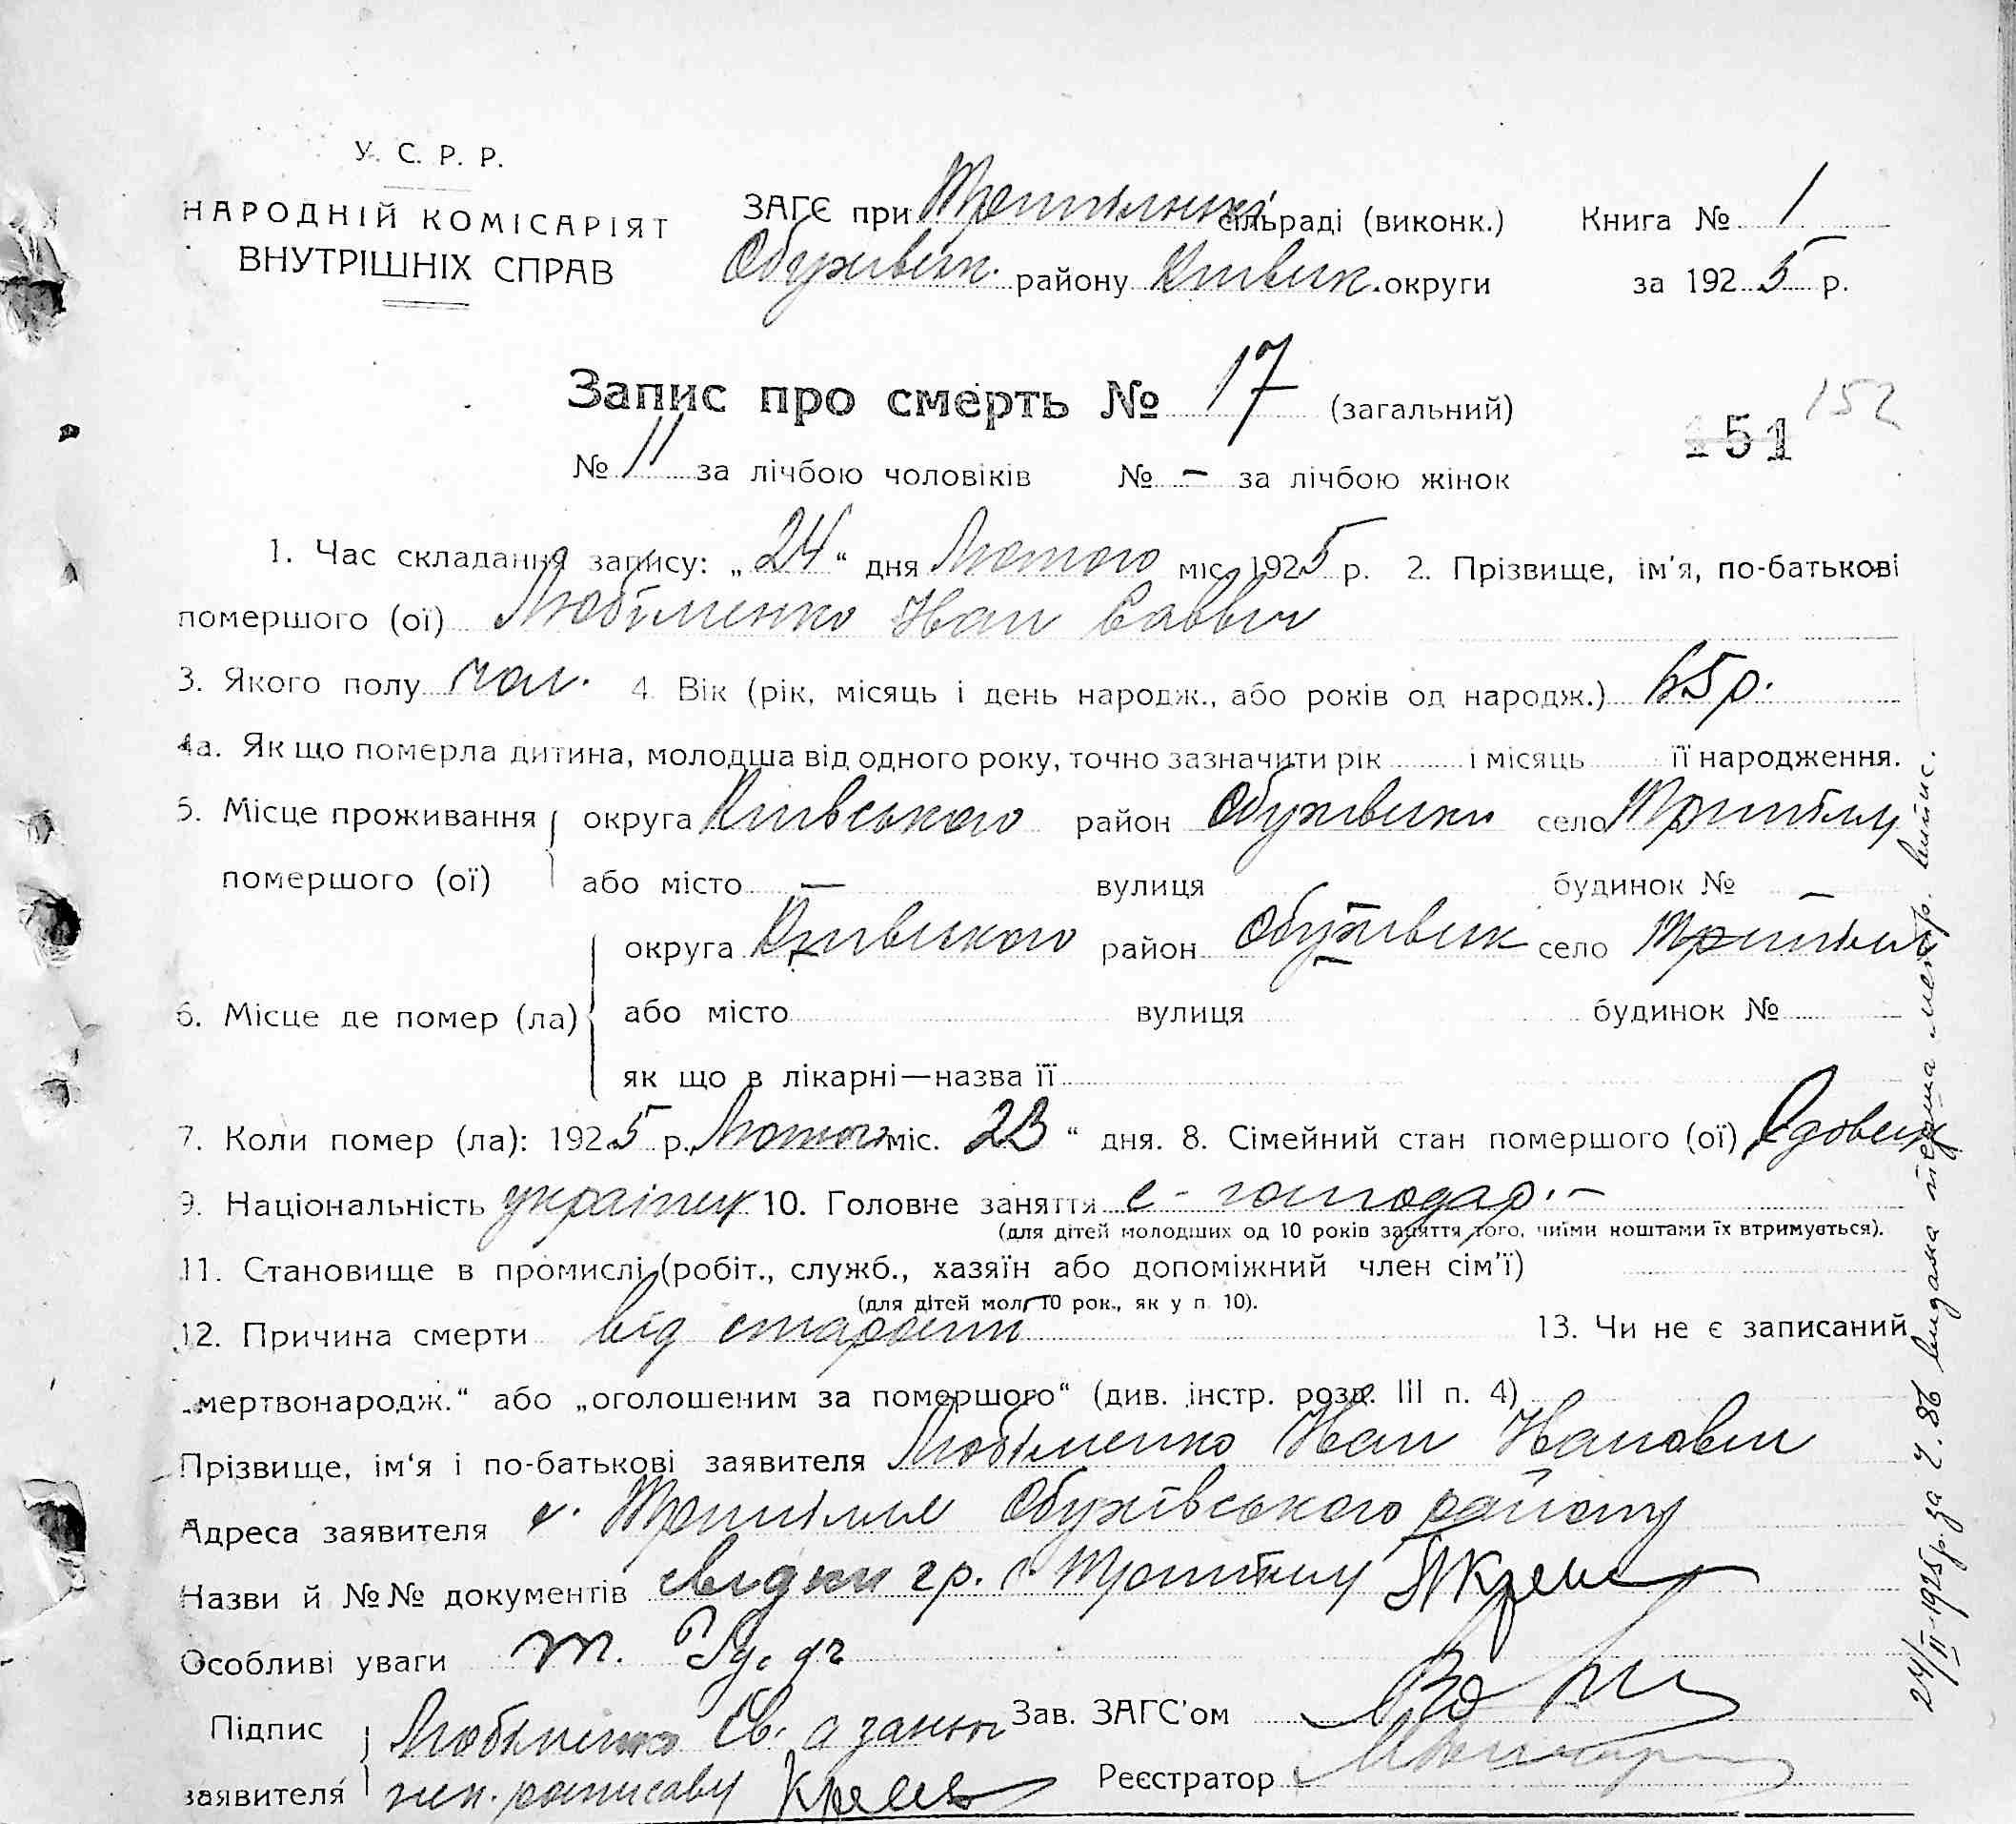 У. С. Р. Р.
НАРОДНІЙ КОМІСАРІЯТ
ВНУТРІШНІХ СПРАВ
ЗАГС при Трипільській сільраді (виконк.) Книга № 1
Обухівськ. району Київськ. округи за 1925 р.
Запис про смерть № 17 (загальний)
151 152
№ 11 за лічбою чоловіків № – за лічбою жінок
1. Час складання запису: „24“ дня Лютого міс. 1925 р. 2. Прізвище, ім'я, по-батькові
помершого (ої) Любіменко Иван Саввич
3. Якого полу чол. 4. Вік (рік, місяць і день народж., або років од народж.) 65 р.
4а. Як що померла дитина, молодша від одного року, точно зазначити рік і місяць її народження.
5. Місце проживання округа Київського район Обухівськ село Трипілля
помершого (ої) або місто — вулиця будинок № —
округа Київського район Обухівськ село Трипілля
6. Місце де помер (ла) або місто вулиця будинок №
як що в лікарні—назва її
7. Коли помер (ла): 1925 р. Лютого міс. 23 “ дня. 8. Сімейний стан помершого (ої) Вдовець
9. Національність українець 10. Головне заняття с-господар. –
(для дітей молодших од 10 років заняття того, чиїми коштами їх втримується).
11. Становище в промислі (робіт., служб., хазяїн або допоміжний член сім'ї)
(для дітей мол. 10 рок., як у п. 10).
12. Причина смерти від старости 13. Чи не є записаний
„мертвонародж.“ або „оголошеним за помершого“ (див. інстр. розд. III п. 4)
Прізвище, ім'я і по-батькові заявителя Любіменко Иван Иванович
Адреса заявителя с. Трипілля Обухівського району
Назви й №№ документів свідки гр. с. Трипілля
Особливі уваги
Підпис Любіменко Зав. ЗАГС'ом
заявителя Реєстратор
24/II–1925 р. за Ч. 86 видана перша метр. випис.